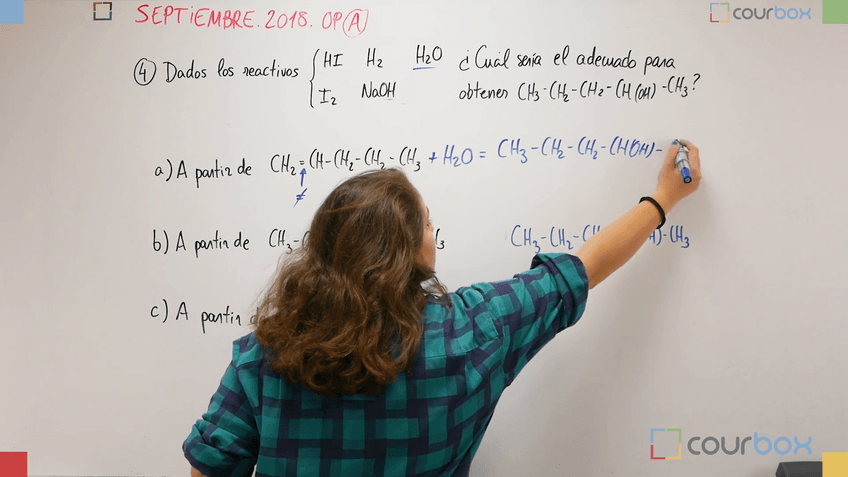 SEPTIEMBRE. 2018. OP(A)
courbox
(4) Dados los reactivos { HI H₂ H₂O ¿Cuál sería el adecuado para
I₂ NaOH obtener CH₃-CH₂-CH₂-CH(OH)-CH₃?
a) A partir de CH₂=CH-CH₂-CH₂-CH₃ + H₂O = CH₃-CH₂-CH₂-CH(OH)-
≠
b) A partir de CH₃- CH₃-CH₂- )-CH₃
c) A partir
courbox